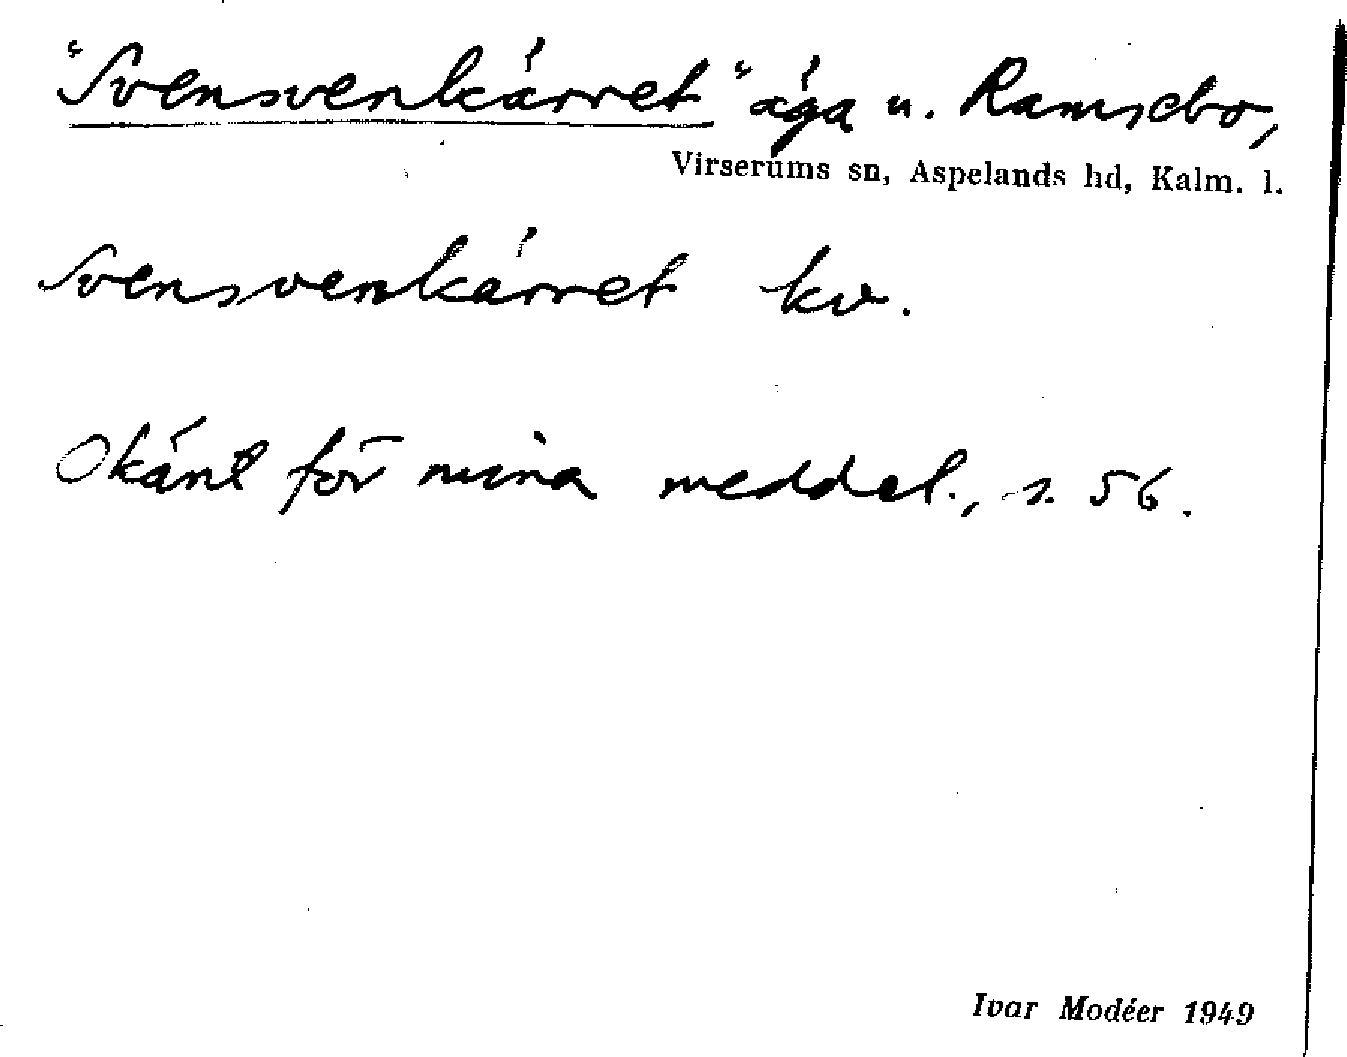 "Svensvenkärret" äga u. Ramsebo,
Virserums sn, Aspelands hd, Kalm. l.
Svensvenkärret kv.
Okänt för mina meddel., s. 56.
Ivar Modéer 1949